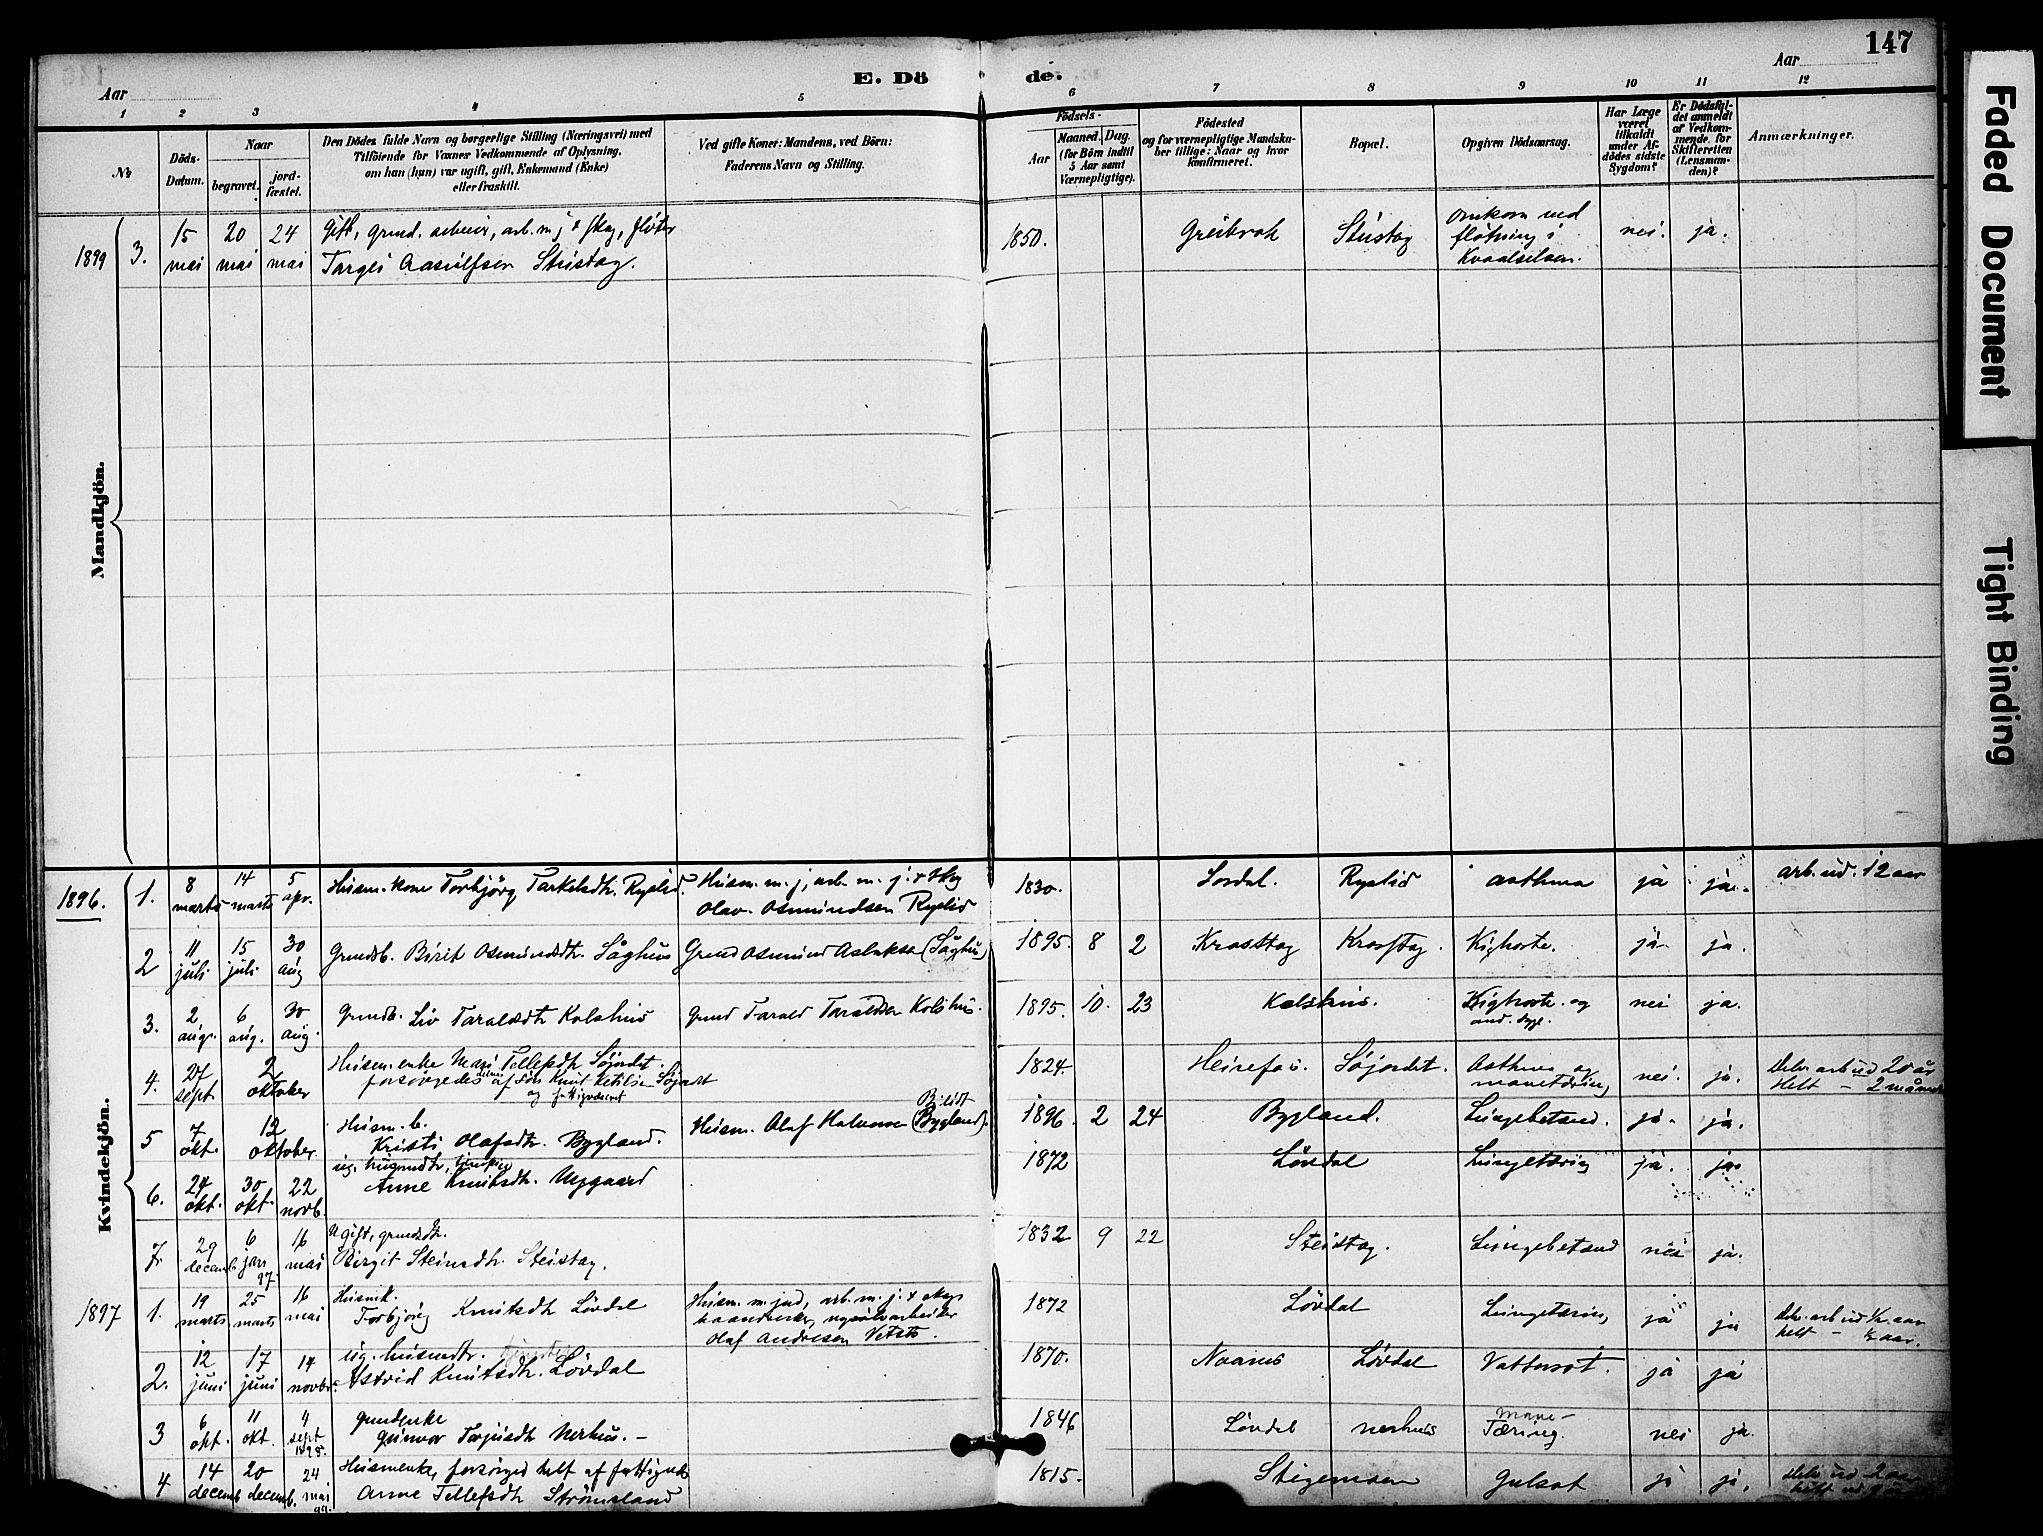 147
Aar
E. Dö
de.
Aar
1 2 3 4 5 6 7 8 9 10 11 12
No
Döds-Datum.
Naar
begravet.
jord-fæstet.
Den Dödes fulde Navn og borgerlige Stilling (Næringsvei) med
Tilföiende for Voxnes Vedkommende af Oplysning,
om han (hun) var ugift, gift, Enkemand (Enke)
eller fraskilt.
Ved gifte Koner: Mandens, ved Börn:
Faderens Navn og Stilling.
Födsels-
Aar
Maaned. Dag.
(for Börn indtil
5 Aar samt
Værnepligtige).
Födested
og for værnepligtige Mandska-
ber tillige: Naar og hvor
konfirmeret.
Bopæl.
Opgiven Dödsaarsag.
Har Læge
været
tilkaldt
under Af-
dödes sidste
Sygdom?
Er Dödsfal-
det anmeldt
af Vedkom-
mende for
Skifteretten
(Lensman-
den)?
Anmærkninger.
Mandkjön.
1899 3. 15 mai 20 mai 24 mai
Gift, grund. arbeider, arb. m. j. & skog, fløter
Targei Aasulfsen Steistog.
1850. Greibrok Steistog
omkom ved
fløtning i
Kvaalselven.
nei. ja.
Kvindekjön.
1896. 1. 8 marts 14 marts 5 apr.
Husm. kone Torbjörg Tarkelsdtr. Ryslid.
Husm. m. j., arb. m. j. & skog
Olav Osmundsen Ryslid
1830. Lordal. Ryslid asthma ja ja. arb. ud. 12 aar
2 11 juli 15 juli 30 aug
Grundb. Birit Osmundsdtr. Såghus
Grund Osmund Aslaksen (Såghus)
1895. 8 2 Krosstog Krosstog. Kighoste. ja. ja.
3. 2 aug. 6 aug. 30 aug.
Grundb. Liv Taraldsdtr Kolshus
Grund Tarald Taraldsen Kolshus.
1895. 10. 23 Kolshus. Kighoste og
and. syge.
nei ja.
4. 27 sept 2 oktober
Husm.enke Mari Tellefsdtr. Søjordet.
forsörgedes delvis af Søn Knut Ketilsen Søjordet
og fattigvæsenet
1824. Heirefos Søjordet. Asthma og
mavetæring
nei. ja. Delv. arb ud 20 år
Helt – 2 måneder
5 7 okt. 12 oktober.
Husm. b.
Kristi Olafsdtr. Bygland.
Husm. Olaf Halvorsen (Bygland).
1896. 2 24 Bygland. Lungebetænd. ja. ja.
6. 24 okt. 30 okt. 22 novb.
ug. husmdtr, tjenpige
Anne Knutsdtr. Uppgaard
1872 Løvdal Lungetæring ja. ja.
7. 29 decemb. 6 jan 97. 16 mai
Ugift, grundsdtr.
Birgit Steinsdtr. Steistog.
1832 9 22 Steistog. Lungebetænd nei ja.
1897 1. 19 marts 25 marts 16 mai
Husmk.
Torbjörg Knutsdtr Løvdal
Husm. m. jord, arb. m. j. & skog
haandverker,
Olaf Andresen
1872 Løvdal Lungetæring ja ja Delv. arb ud ½ aar
helt – ½ aar.
2. 12 juni 17 juni 14 novbr.
ug. husmdtr.
Astrid Knutsdtr. Løvdal
1870. Naanes Løvdal Vattersot. ja ja
3 6 okt. 11 okt. 4 sept 1898.
grundenke
Gunvor Torjusdtr Nerhus. –
1846 Løvdal nerhus Mave-
Tæring.
nei ja.
4 14 decemb 20 decemb. 24 mai
Husmenke, forsörged helt af fattigvæs
Anne Tellefsdtr Strömsland
1815. Stigemoen Gulsot ja ja. Delv. ud 2 aar
helt ud
Faded Document
Tight Binding